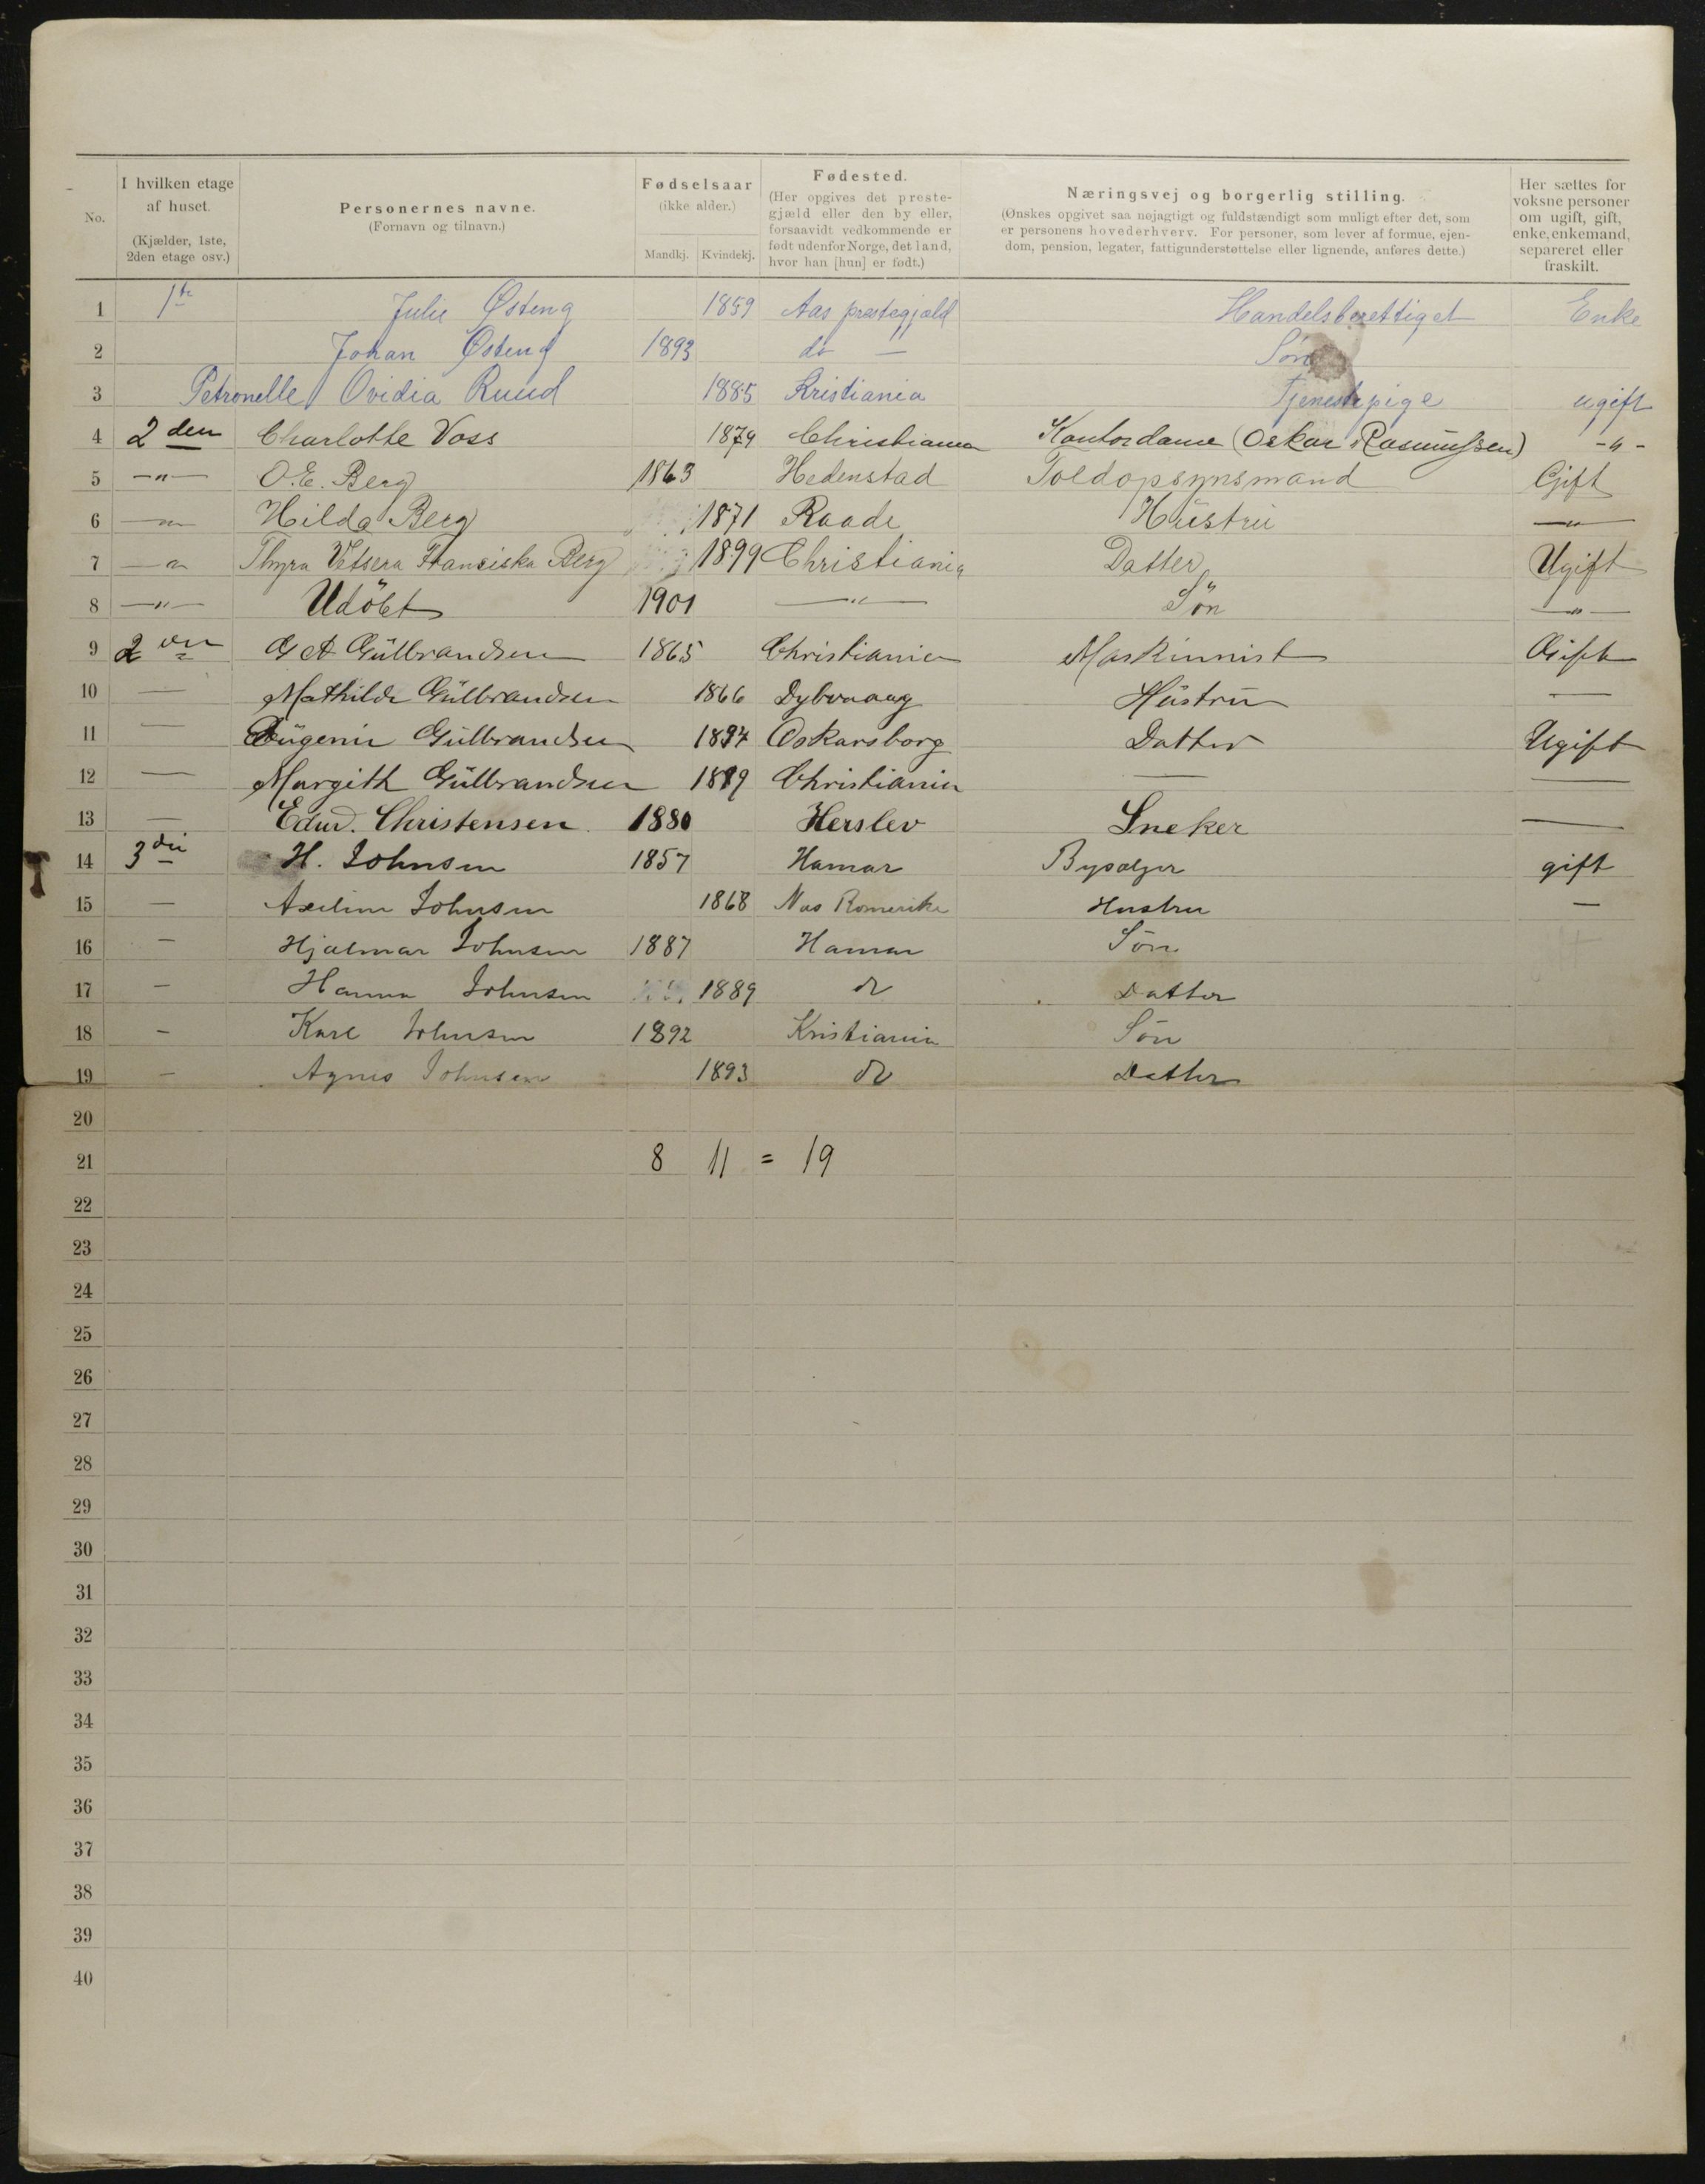 No. | I hvilken etage af huset. (Kjælder, 1ste, 2den etage osv.) | Personernes navne. (Fornavn og tilnavn.) | Fødselsaar (ikke alder.) Mandkj. Kvindekj. | Fødested. (Her opgives det prestegjæld eller den by eller, forsaavidt vedkommende er født udenfor Norge, det land, hvor han [hun] er født.) | Næringsvej og borgerlig stilling. (Ønskes opgivet saa nøjagtigt og fuldstændigt som muligt efter det, som er personens hovederhverv. For personer, som lever af formue, ejendom, pension, legater, fattigunderstøttelse eller lignende, anføres dette.) | Her sættes for voksne personer om ugift, gift, enke, enkemand, separeret eller fraskilt.
1 1ste Julie Østeng 1859 Aas prestegjæld Handelsberettiget Enke
2 Johan Østeng 1893 do — Søn
3 Petronelle Ovidia Ruud 1885 Kristiania Tjenestepige ugift
4 2den Charlotte Voss 1879 Christiania Kontordame (Oskar Rasmussen) -"-
5 —"— O.E. Berg 1863 Hedenstad Toldopsynsmand Gift
6 —"— Hilda Berg 1871 Raade Hustru —"—
7 —"— Thyra Vetsera Franciska Berg 1899 Christiania Datter Ugift
8 —"— Udöbt 1901 —"— Sön —"—
9 2den G A Gulbrandsen 1865 Christiania Maskinnist Gift
10 — Mathilde Gulbrandsen 1866 Dybvaag Hustru —
11 — Eugenie Gulbrandsen 1897 Oskarsborg Datter Ugift
12 — Margith Gulbrandsen 1899 Christiania — —
13 — Edw. Christensen 1880 Herslev Sneker —
14 3die H. Johnsen 1857 Hamar Bysælger gift
15 — Axeline Johnsen 1868 Nes Romerike Hustru —
16 — Hjalmar Johnsen 1887 Hamar Søn
17 — Hanna Johnsen 1889 do Datter
18 — Karl Johnsen 1892 Kristiania Søn
19 — Agnes Johnsen 1893 do Datter
20
21 8 11 = 19
22
23
24
25
26
27
28
29
30
31
32
33
34
35
36
37
38
39
40